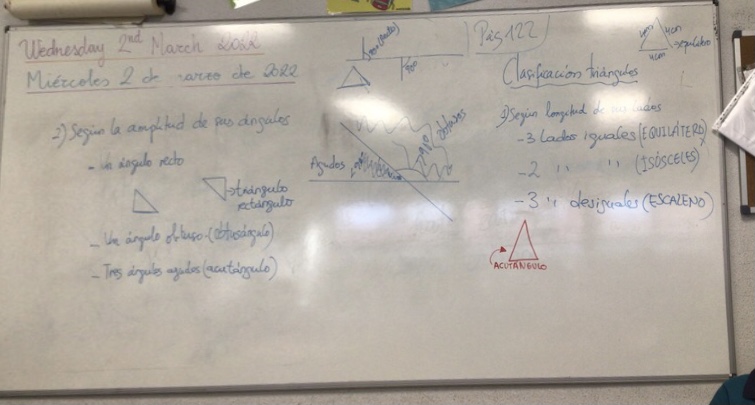 Wednesday 2nd March 2022
Miércoles 2 de marzo de 2022
2) Según la amplitud de sus ángulos
- Un ángulo recto
triángulo
rectángulo
- Un ángulo obtuso (obtusángulo)
- Tres ángulos agudos (acutángulo)
90º (recto)
90º
Agudos
obtusos
Pág 122
4cm
4cm
4cm
equilátero
Clasificación triángulos
1) Según longitud de sus lados
- 3 Lados iguales (EQUILÁTERO)
- 2 " " (ISÓSCELES)
- 3 " desiguales (ESCALENO)
ACUTÁNGULO